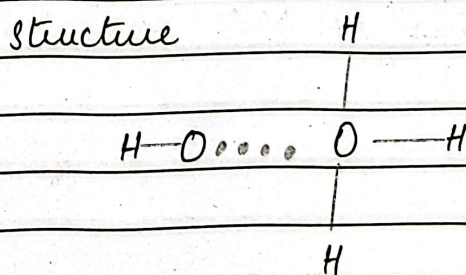 structure
H
H—O....O—H
H